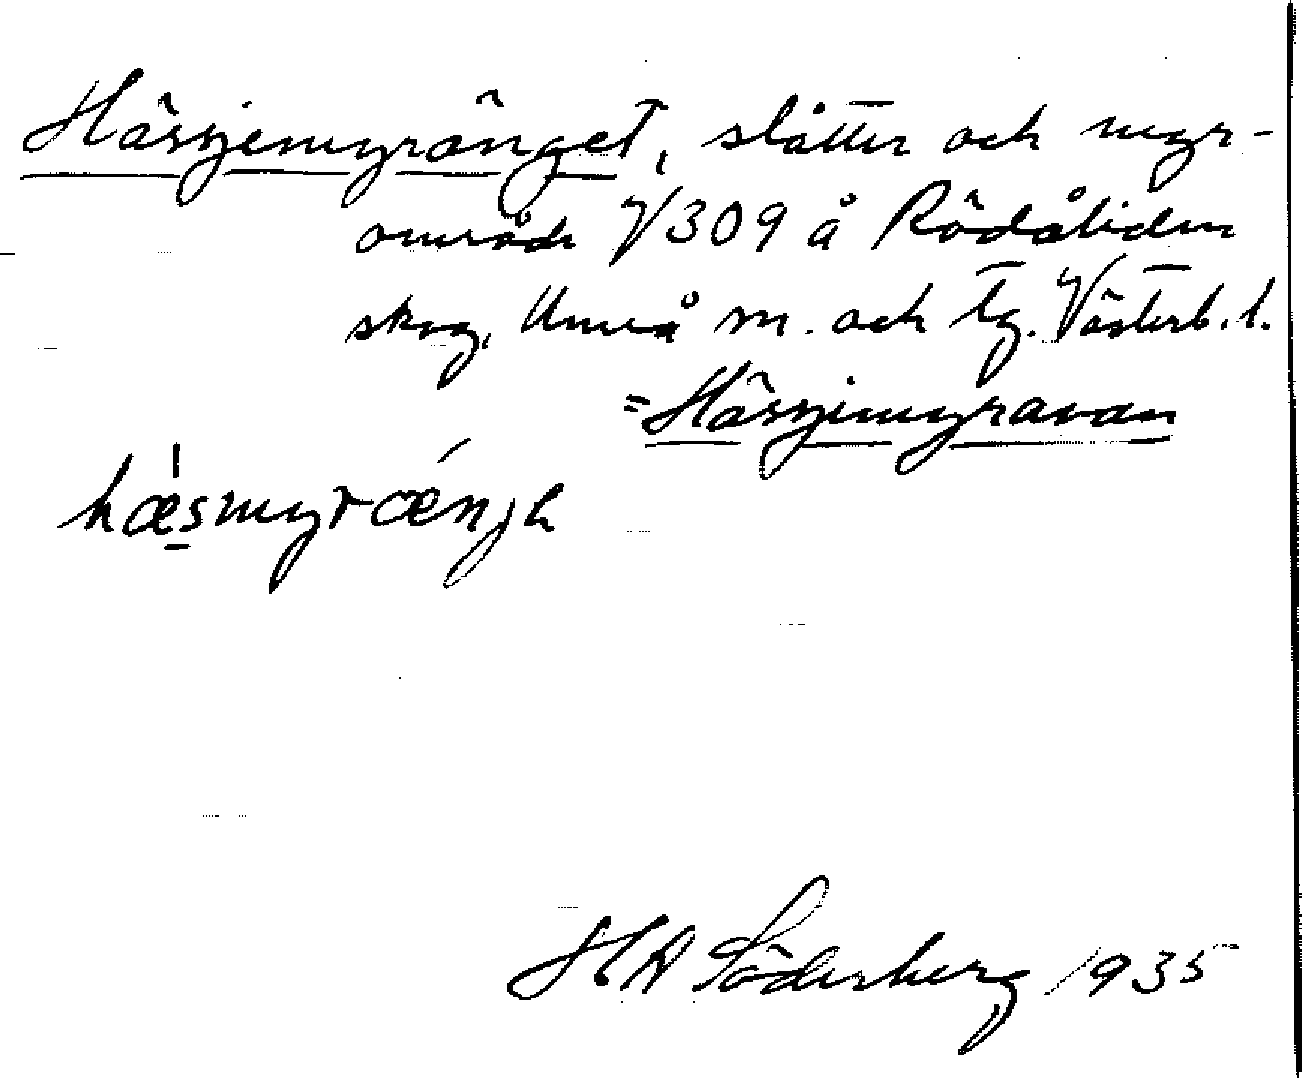 Hässjemyränget, slåtter och myr-
område V309 å Rödåliden
skog, Umeå m. och tg. Västerb. l.
= Hässjemyravan
hæsmyræŋjə
HA Söderberg 1935